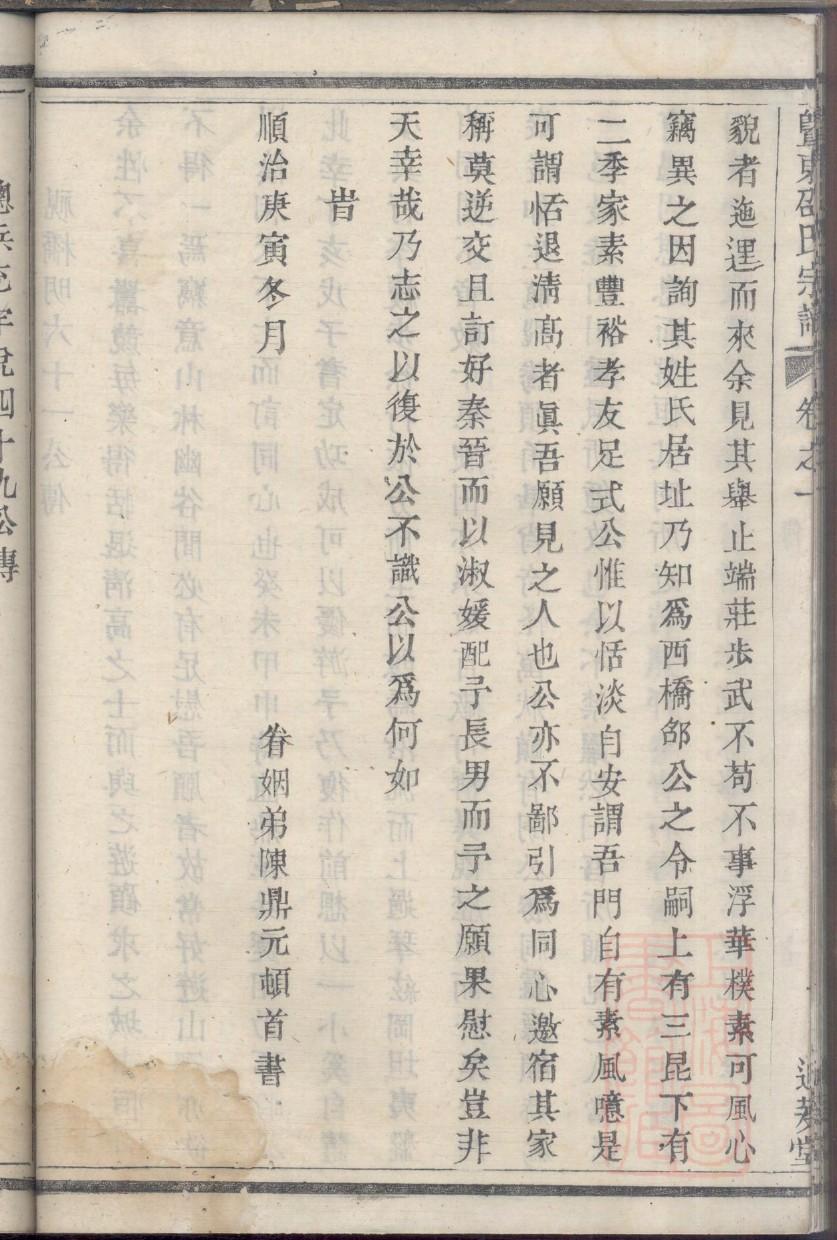 暨東邵氏宗譜 卷之一
貌者迤逕而來余見其舉止端莊步武不苟不事浮華樸素可風心
竊異之因詢其姓氏居址乃知爲西橋邵公之令嗣上有三昆下有
二季家素豐裕孝友足式公惟以恬淡自安謂吾門自有素風噫是
可謂恬退淸髙者眞吾願見之人也公亦不鄙引爲同心邀宿其家
稱莫逆交且訂好秦晉而以淑媛配予長男而予之願果慰矣豈非
天幸哉乃志之以復於公不識公以爲何如
旹
順治庚寅冬月 眷姻弟陳鼎元頓首書
四十九公傳